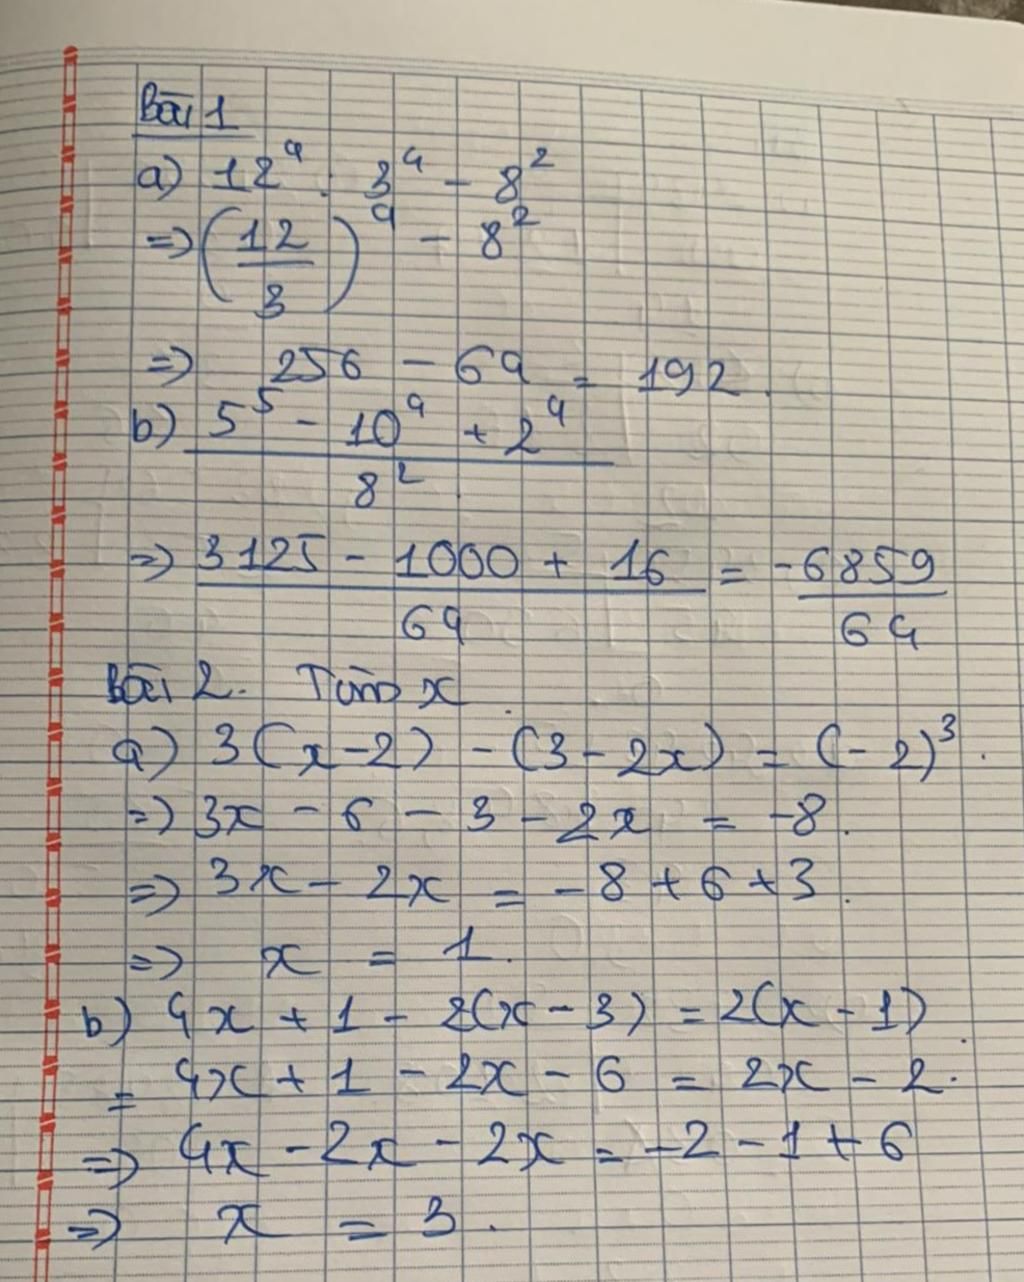 Bài 1
a) 12⁴ : 3⁴ - 8²
=> (12/3)⁴ - 8²
=> 256 - 64 = 192.
b) (5⁵ - 10⁴ + 2⁴)/8²
=> (3125 - 1000 + 16)/64 = -6859/64
Bài 2. Tìm x
a) 3(x-2) - (3 - 2x) = (-2)³.
=> 3x - 6 - 3 - 2x = -8.
=> 3x - 2x = -8 + 6 + 3.
=> x = 1.
b) 4x + 1 - 2(x - 3) = 2(x - 1).
= 4x + 1 - 2x - 6 = 2x - 2.
=> 4x - 2x - 2x = -2 - 1 + 6
=> x = 3.